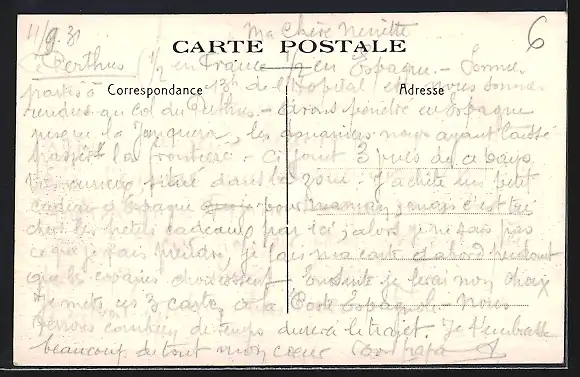 11/9.31 Ma Chère Ninette 6
CARTE POSTALE
Le Perthus (1/2 en France 1/2 en Espagne. - Sommes
Correspondance Adresse
partis à 13h de l'Hôpital et nous sommes
rendus au Col du Perthus. - Avons pénétré en Espagne
jusque la Jonquera, les douaniers nous ayant laissé
la frontière - Ci joint 3 vues de ce pays
très curieux situé dans la zone - J'achète un petit
cadeau d'Espagne pour maman, mais c'est très
cher les petits cadeaux par ici, alors je ne sais pas
ce que je vais prendre, je fais ma carte d'abord pendant
que les copains choisissent. Ensuite je ferai mon choix
Je mets ces 3 cartes à la Poste Espagnole. - Nous
verrons combien de temps durera le trajet. Je t'embrasse
beaucoup de tout mon coeur Ton papa